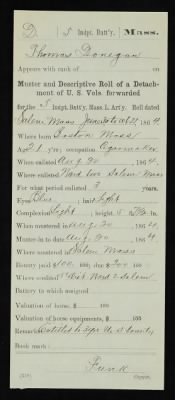 D. 5 Indpt. Batt'y. Mass.
Thomas Donegan
Appears with rank of on
Muster and Descriptive Roll of a Detachment
of U. S. Vols. forwarded
for the 5 Indpt. Batt'y, Mass. L. Art'y. Roll dated
Salem Mass 1864
Where born Boston Mass
Age 21 y'rs; occupation Cigarmaker
When enlisted Aug 30, 1864
Where enlisted Ward Salem Mass
For what period enlisted years.
Eyes Blue; hair Light
Complexion Light; height 5 ft. in.
When mustered in Aug 30, 1864
Muster-in to date Aug 30, 1864
Where mustered in Salem Mass
Bounty paid $ 100; due $ 100
Where credited Ward 2 Salem
Battery to which assigned
Valuation of horse, $ 100
Valuation of horse equipments, $ 100
Remarks: Entitled to U.S. bounty
Book mark:
Funk
Copyist.